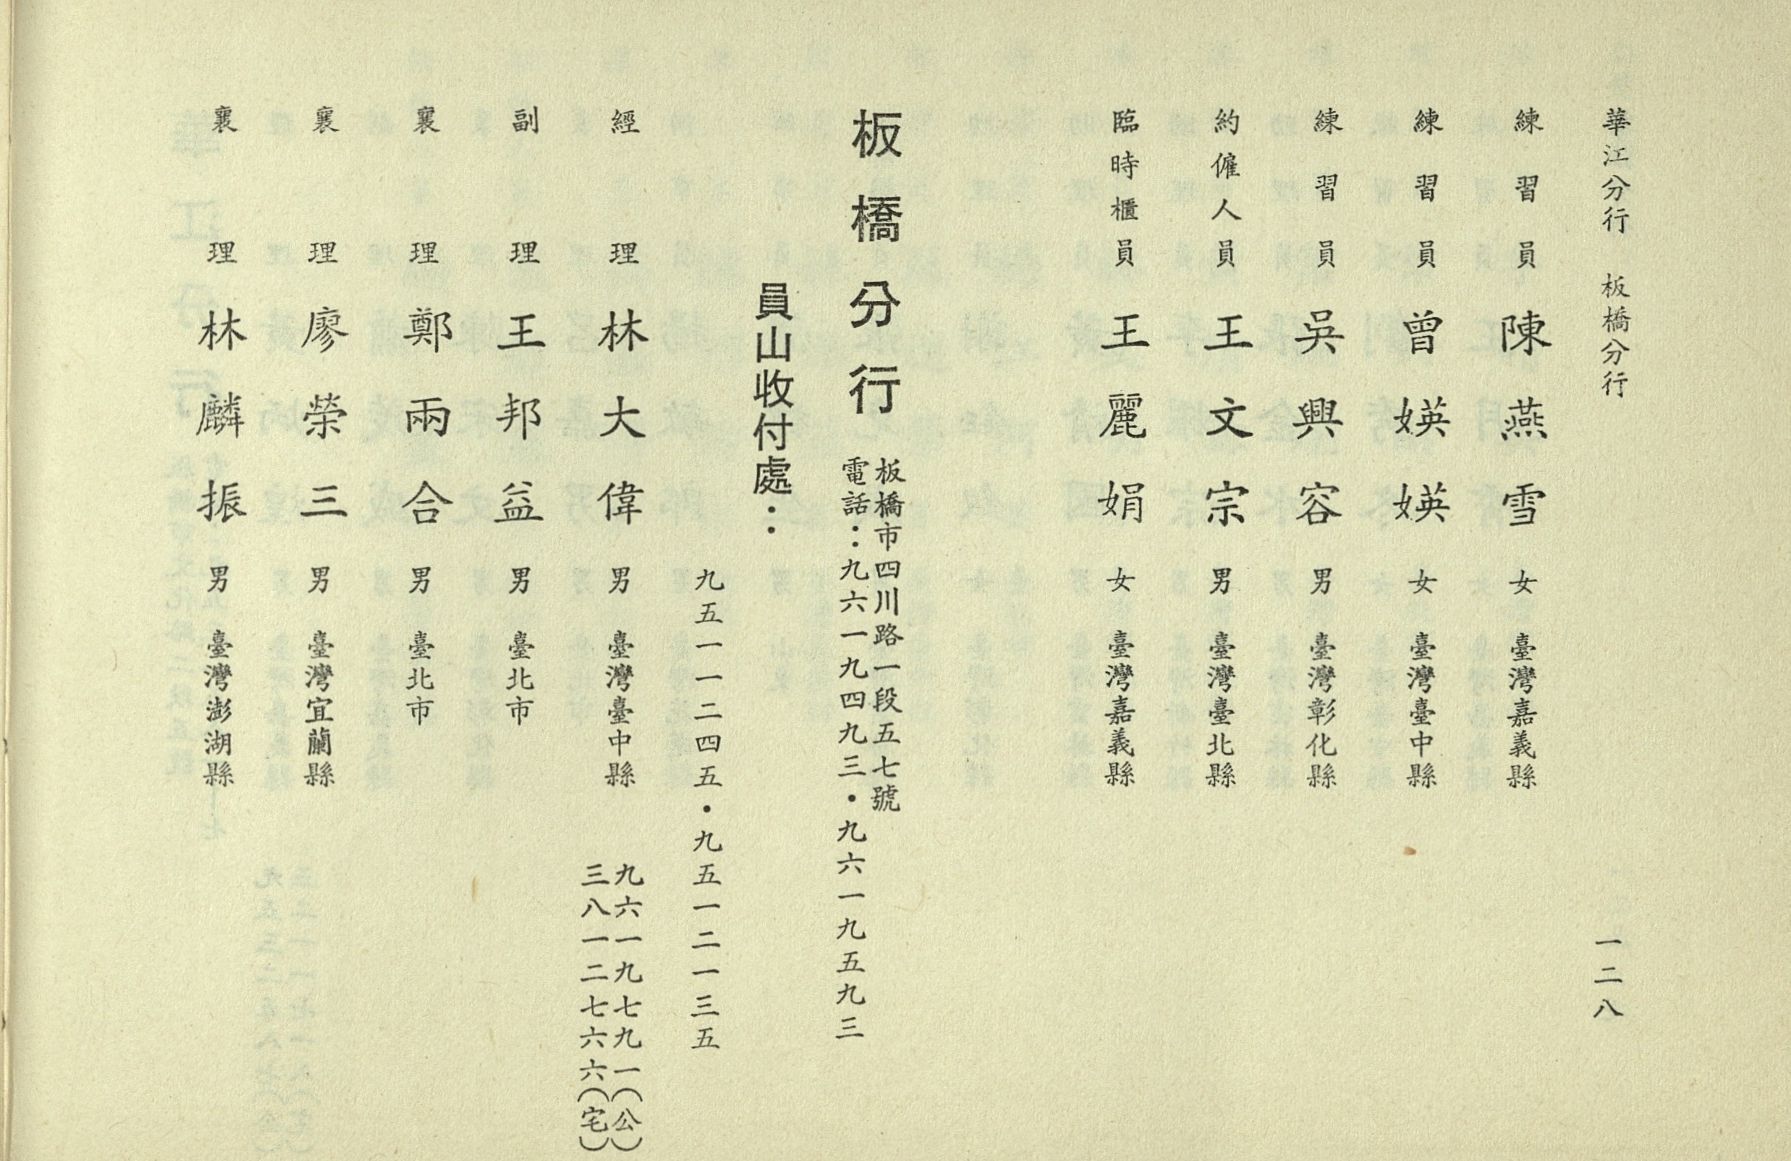 華江分行 板橋分行
一二八
練習員 陳燕雪 女 臺灣嘉義縣
練習員 曾媖媖 女 臺灣臺中縣
練習員 吳興容 男 臺灣彰化縣
約僱人員 王文宗 男 臺灣臺北縣
臨時櫃員 王麗娟 女 臺灣嘉義縣
板橋分行
板橋市四川路一段五七號
電話：九六一九四九三・九六一九五九三
員山收付處：
九五一一二四五・九五一二一三五
經理 林大偉 男 臺灣臺中縣
九六一九七九一(公)
三八一二七六六(宅)
副理 王邦益 男 臺北市
襄理 鄭兩合 男 臺北市
襄理 廖榮三 男 臺灣宜蘭縣
襄理 林麟振 男 臺灣澎湖縣